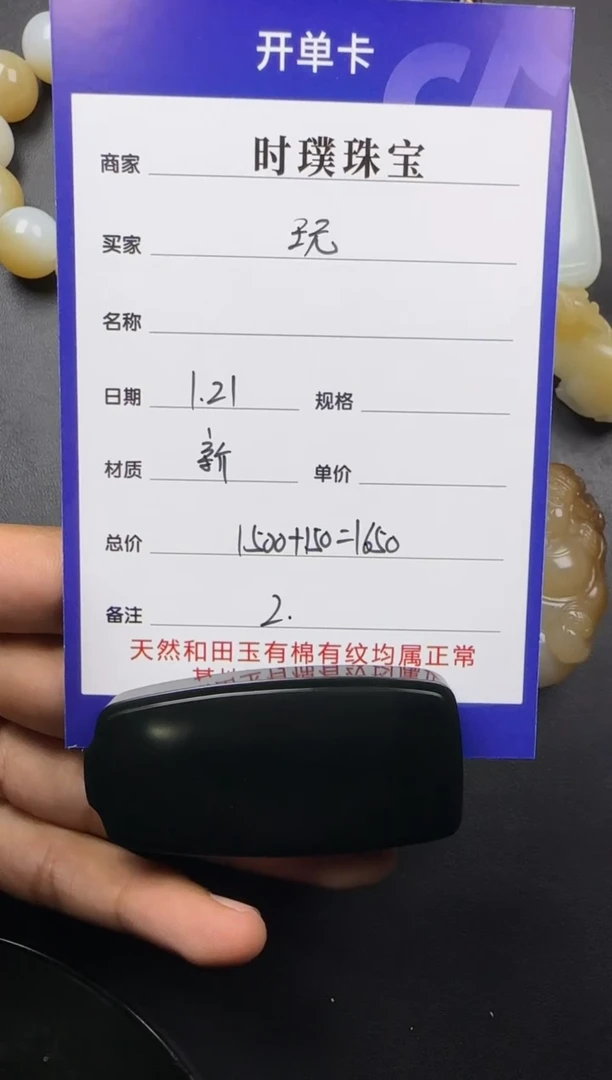 开单卡
商家 时璞珠宝
买家 玩
名称
日期 1.21 规格
材质 新 单价
总价 1500+150=1650
备注 2.
天然和田玉有棉有纹均属正常